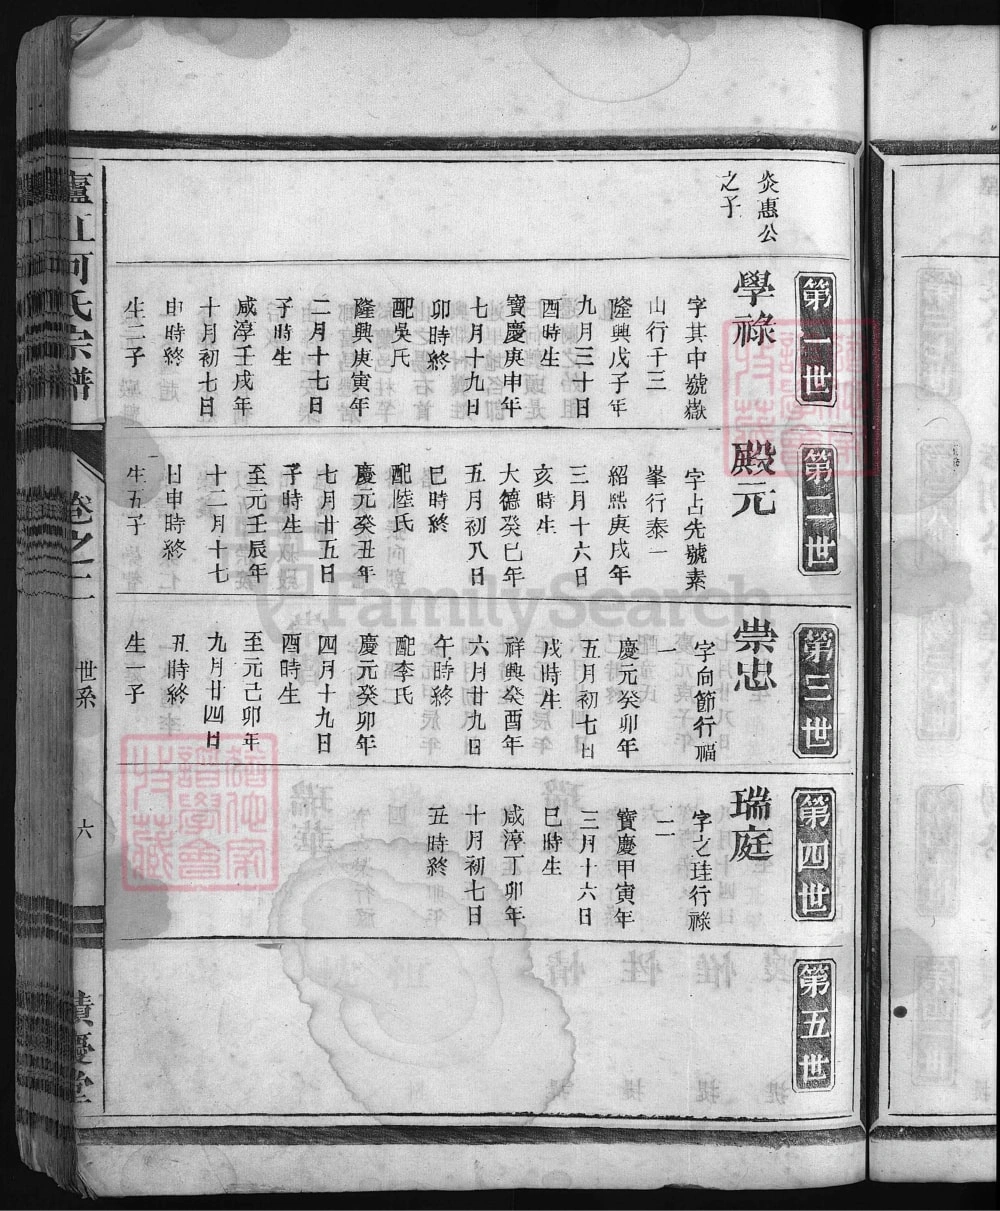 炎惠公
之子
第一世
學祿
字其中號嶽
山行千三
隆興戊子年
九月三十日
酉時生
寶慶庚申年
七月十九日
卯時終
配吳氏
隆興庚寅年
二月十七日
子時生
咸淳壬戌年
十月初七日
申時終
生二子
第二世
殿元
字占先號素
峯行泰一
紹熙庚戌年
三月十六日
亥時生
大德癸巳年
五月初八日
巳時終
配陸氏
慶元癸丑年
七月廿五日
子時生
至元壬辰年
十二月十七
日申時終
生五子
第三世
崇忠
字向節行福
一
慶元癸卯年
五月初七日
戌時生
祥興癸酉年
六月廿九日
午時終
配李氏
慶元癸卯年
四月十九日
酉時生
至元己卯年
九月廿四日
丑時終
生一子
第四世
瑞庭
字之珪行祿
二
寶慶甲寅年
三月十六日
巳時生
咸淳丁卯年
十月初七日
丑時終
第五世
廬江何氏宗譜
卷之一
世系
六
FamilySearch